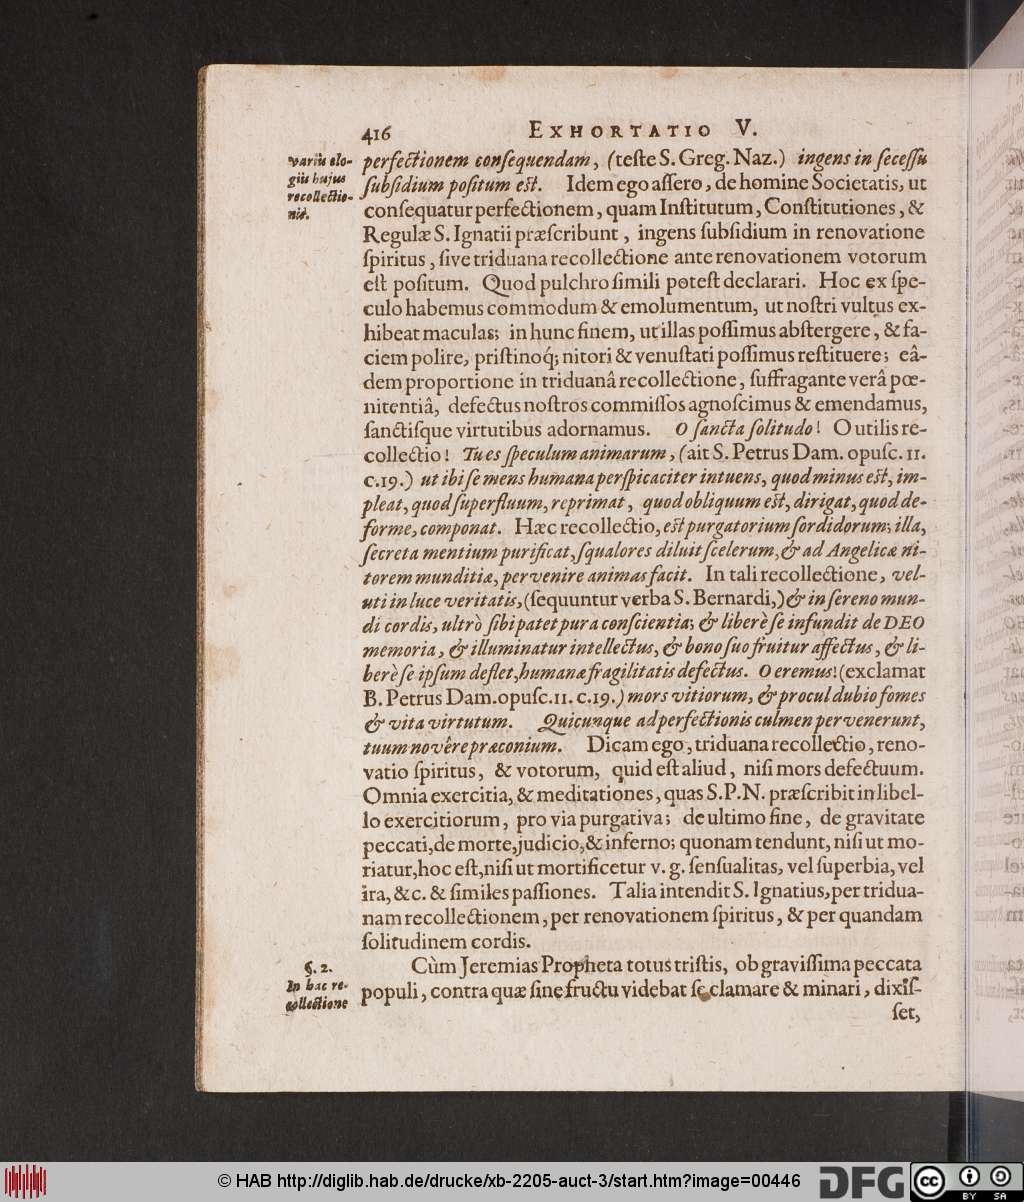 416 EXHORTATIO V.
variis elo-
giis hujus
recollectio-
nis.
perfectionem consequendam, (teste S. Greg. Naz.) ingens in secessu
subsidium positum est. Idem ego assero, de homine Societatis, ut
consequatur perfectionem, quam Institutum, Constitutiones, &
Regulæ S. Ignatii præscribunt, ingens subsidium in renovatione
spiritus, sive triduana recollectione ante renovationem votorum
est positum. Quod pulchro simili potest declarari. Hoc ex spe-
culo habemus commodum & emolumentum, ut nostri vultus ex-
hibeat maculas; in hunc finem, ut illas possimus abstergere, & fa-
ciem polire, pristinoq́; nitori & venustati possimus restituere; eâ-
dem proportione in triduanâ recollectione, suffragante verâ pœ-
nitentiâ, defectus nostros commissos agnoscimus & emendamus,
sanctisque virtutibus adornamus. O sancta solitudo! O utilis re-
collectio! Tu es speculum animarum, (ait S. Petrus Dam. opusc. 11.
c. 19.) ut ibi se mens humana perspicaciter intuens, quod minus est, im-
pleat, quod superfluum, reprimat, quod obliquum est, dirigat, quod de-
forme, componat. Hæc recollectio, est purgatorium sordidorum; illa,
secreta mentium purificat, squalores diluit scelerum, & ad Angelicæ ni-
torem munditiæ, pervenire animas facit. In tali recollectione, vel-
uti in luce veritatis, (sequuntur verba S. Bernardi,) & in sereno mun-
di cordis, ultrò sibi patet pura conscientia; & liberè se infundit de DEO
memoria, & illuminatur intellectus, & bono suo fruitur affectus, & li-
berè se ipsum deflet, humanæ fragilitatis defectus. O eremus! (exclamat
B. Petrus Dam. opusc. 11. c. 19.) mors vitiorum, & procul dubio fomes
& vita virtutum. Quicunque ad perfectionis culmen pervenerunt,
tuum novêre præconium. Dicam ego, triduana recollectio, reno-
vatio spiritus, & votorum, quid est aliud, nisi mors defectuum.
Omnia exercitia, & meditationes, quas S.P.N. præscribit in libel-
lo exercitiorum, pro via purgativa; de ultimo fine, de gravitate
peccati, de morte, judicio, & inferno; quonam tendunt, nisi ut mo-
riatur, hoc est, nisi ut mortificetur v. g. sensualitas, vel superbia, vel
ira, & c. & similes passiones. Talia intendit S. Ignatius, per tridua-
nam recollectionem, per renovationem spiritus, & per quandam
solitudinem cordis.
§. 2.
In hac re-
collectione
Cùm Jeremias Propheta totus tristis, ob gravissima peccata
populi, contra quæ sine fructu videbat se clamare & minari, dixis-
set,
© HAB http://diglib.hab.de/drucke/xb-2205-auct-3/start.htm?image=00446
DFG
cc BY SA